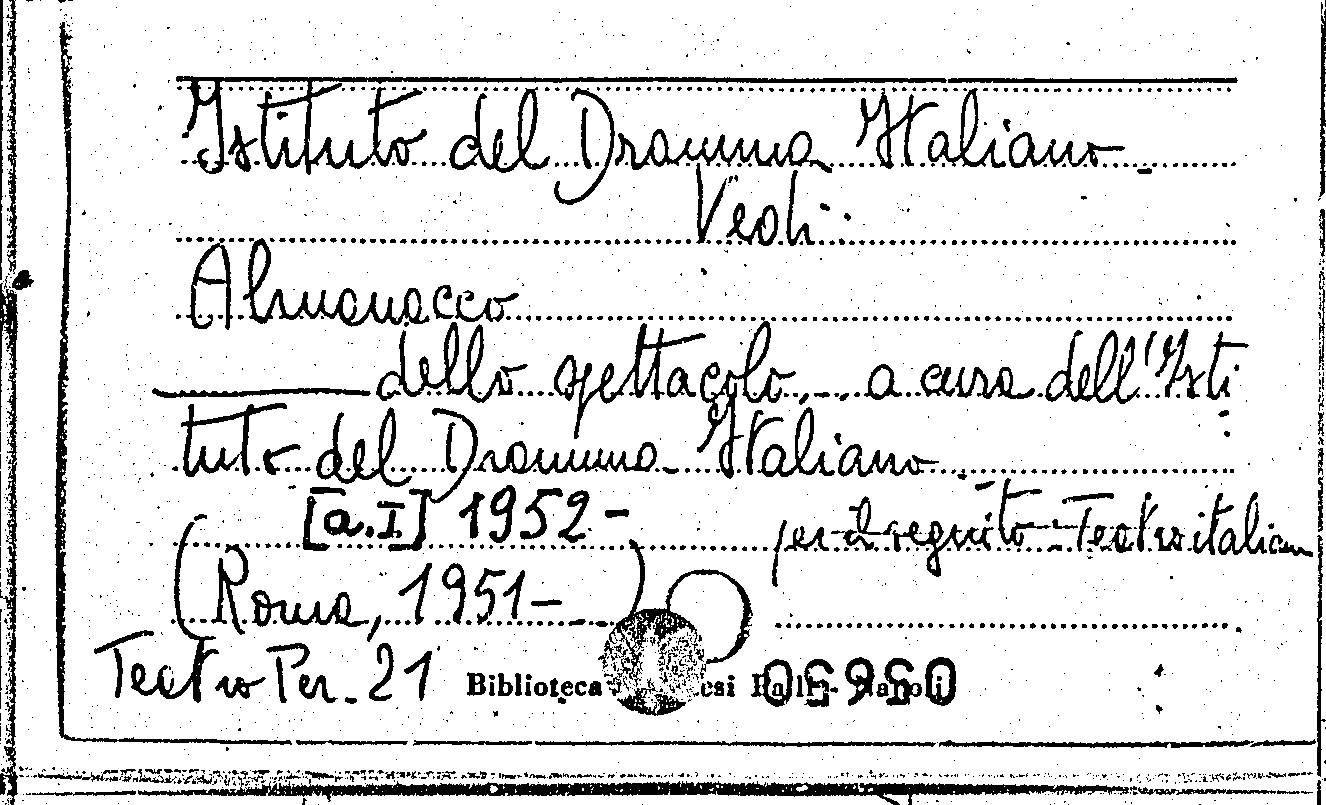 Istituto del Dramma Italiano
Vedi:
Almanacco
dello spettacolo... a cura dell'Isti
tuto del Dramma Italiano.
[a.I] 1952-
per il seguito: Teatro italiano
(Roma, 1951- )
Teatro Per. 21
Biblioteca esi Palli - Napoli